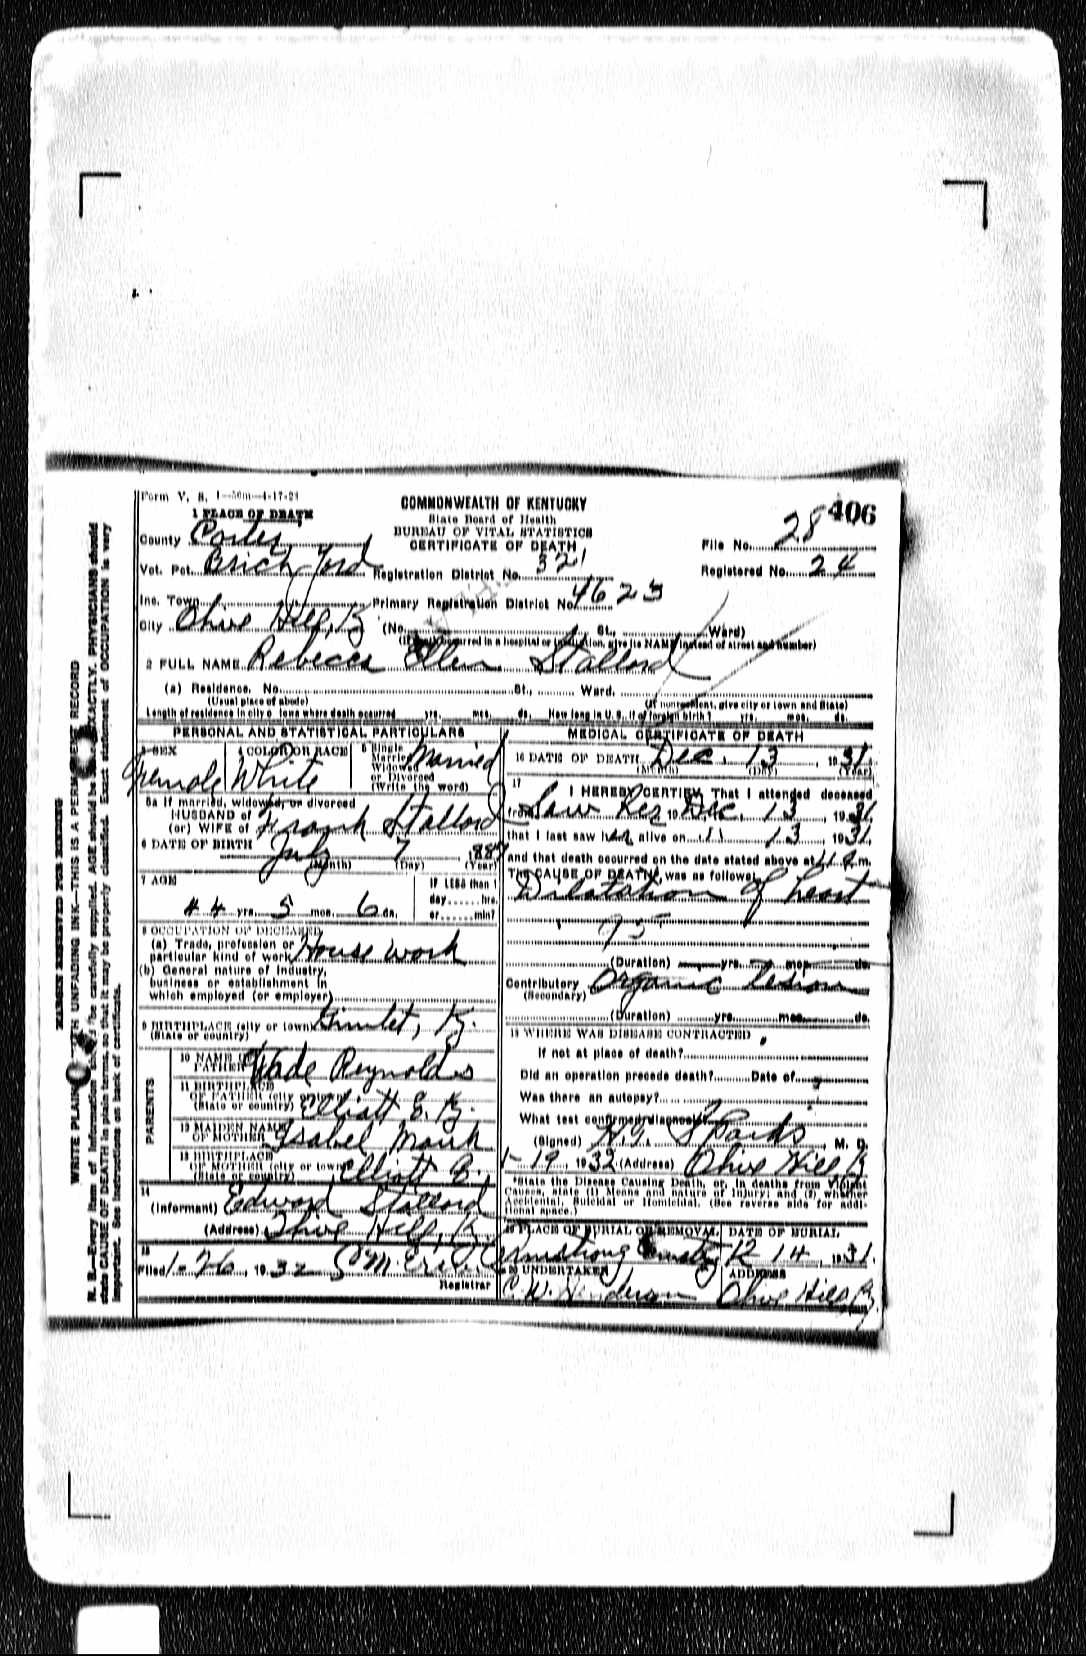 Form V. S. 1—50m—4-17-29
COMMONWEALTH OF KENTUCKY
State Board of Health
BUREAU OF VITAL STATISTICS
CERTIFICATE OF DEATH
406
1 PLACE OF DEATH
County Carter
File No. 28
Vot. Pct. Brick Yard Registration District No. 321
Registered No. 24
Inc. Town Primary Registration District No. 4623
City Olive Hill, Ky (No. St., Ward)
(If death occurred in a hospital or institution, give its NAME instead of street and number)
2 FULL NAME Rebecca Ellen Stallord
(a) Residence. No. St., Ward.
(Usual place of abode) (If nonresident, give city or town and State)
Length of residence in city or town where death occurred yrs. mos. ds. How long in U. S., if of foreign birth? yrs. mos. ds.
PERSONAL AND STATISTICAL PARTICULARS
3 SEX Female
4 COLOR OR RACE White
5 Single Married Widowed or Divorced (Write the word) Married
5a If married, widowed, or divorced
HUSBAND of
(or) WIFE of Frank Stallord
6 DATE OF BIRTH July 7 1887
(Month) (Day) (Year)
7 AGE 44 yrs. 5 mos. 6 ds.
IF LESS than 1 day hrs. or min?
8 OCCUPATION OF DECEASED
(a) Trade, profession or particular kind of work House work
(b) General nature of industry, business or establishment in which employed (or employer)
9 BIRTHPLACE (city or town) Gimlet, Ky.
(State or country)
PARENTS
10 NAME OF FATHER Wade Reynolds
11 BIRTHPLACE OF FATHER (city or town) (State or country) Elliott C. Ky.
12 MAIDEN NAME OF MOTHER Isabel
13 BIRTHPLACE OF MOTHER (city or town) (State or country) Elliott C.,
14
(Informant) Edward Stallord
(Address) Olive Hill, K.
15
Filed 1-26, 1932 Registrar
MEDICAL CERTIFICATE OF DEATH
16 DATE OF DEATH Dec. 13 1931
(Month) (Day) (Year)
17 I HEREBY CERTIFY, That I attended deceased
from Saw Her Dec. 13, 1931,
that I last saw her alive on 11 13, 1931,
and that death occurred on the date stated above at 11 a.m.
THE CAUSE OF DEATH, was as follows:
Dilatation of heart
95
(Duration) yrs. mos. ds.
Contributory Organic Lesion
(Secondary)
(Duration) yrs. mos. ds.
18 WHERE WAS DISEASE CONTRACTED
If not at place of death?
Did an operation precede death? Date of
Was there an autopsy?
What test confirmed diagnosis?
(Signed) Sparks, M. D.
1-19, 1932 (Address) Olive Hill K
*State the Disease Causing Death, or, in deaths from Violent Causes, state (1) Means and nature of Injury; and (2) whether Accidental, Suicidal or Homicidal. (See reverse side for additional space.)
19 PLACE OF BURIAL OR REMOVAL Armstrong Cemetery
DATE OF BURIAL 12 14, 1931.
20 UNDERTAKER C. W. Henderson
ADDRESS Olive Hill, Ky
MARGIN RESERVED FOR BINDING
WRITE PLAINLY WITH UNFADING INK—THIS IS A PERMANENT RECORD
N. B.—Every item of information should be carefully supplied. AGE should be stated EXACTLY. PHYSICIANS should
state CAUSE OF DEATH in plain terms, so that it may be properly classified. Exact statement of OCCUPATION is very
important. See instructions on back of certificate.